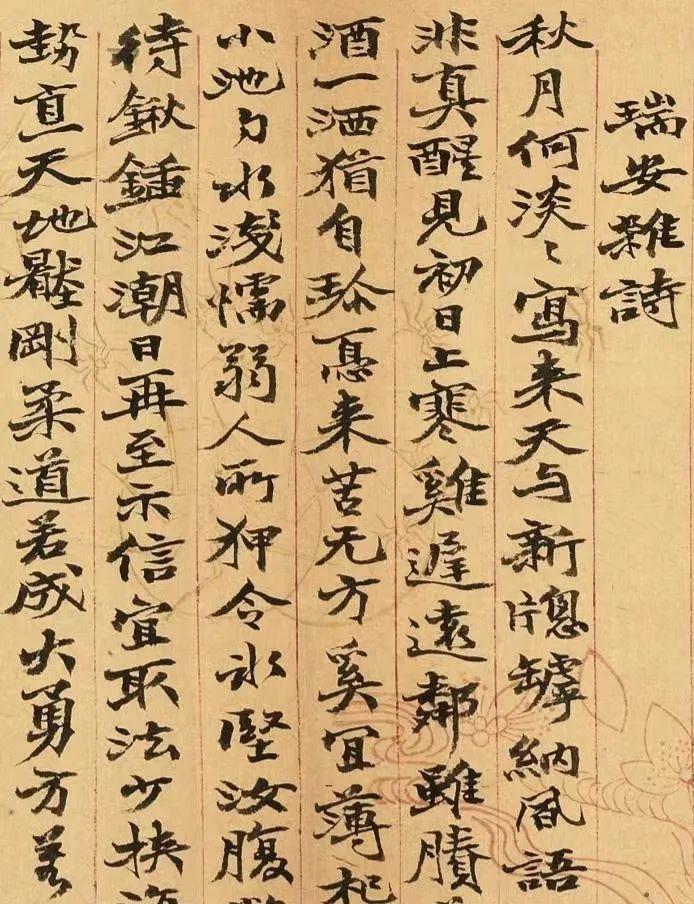 瑞安雜詩
秋月何淡〻寫来天与新窻罅納風語
非真醒見初日上寒雞遲遠鄰雖牘
酒一洒猶自珍憂来苦无方奚宜薄杞
小池勺水淺懦弱人所狎令冰堅汝腹
待鍬鍤江潮日再至示信宜取法少挾
勢直天地壓剛柔道若成大勇方若